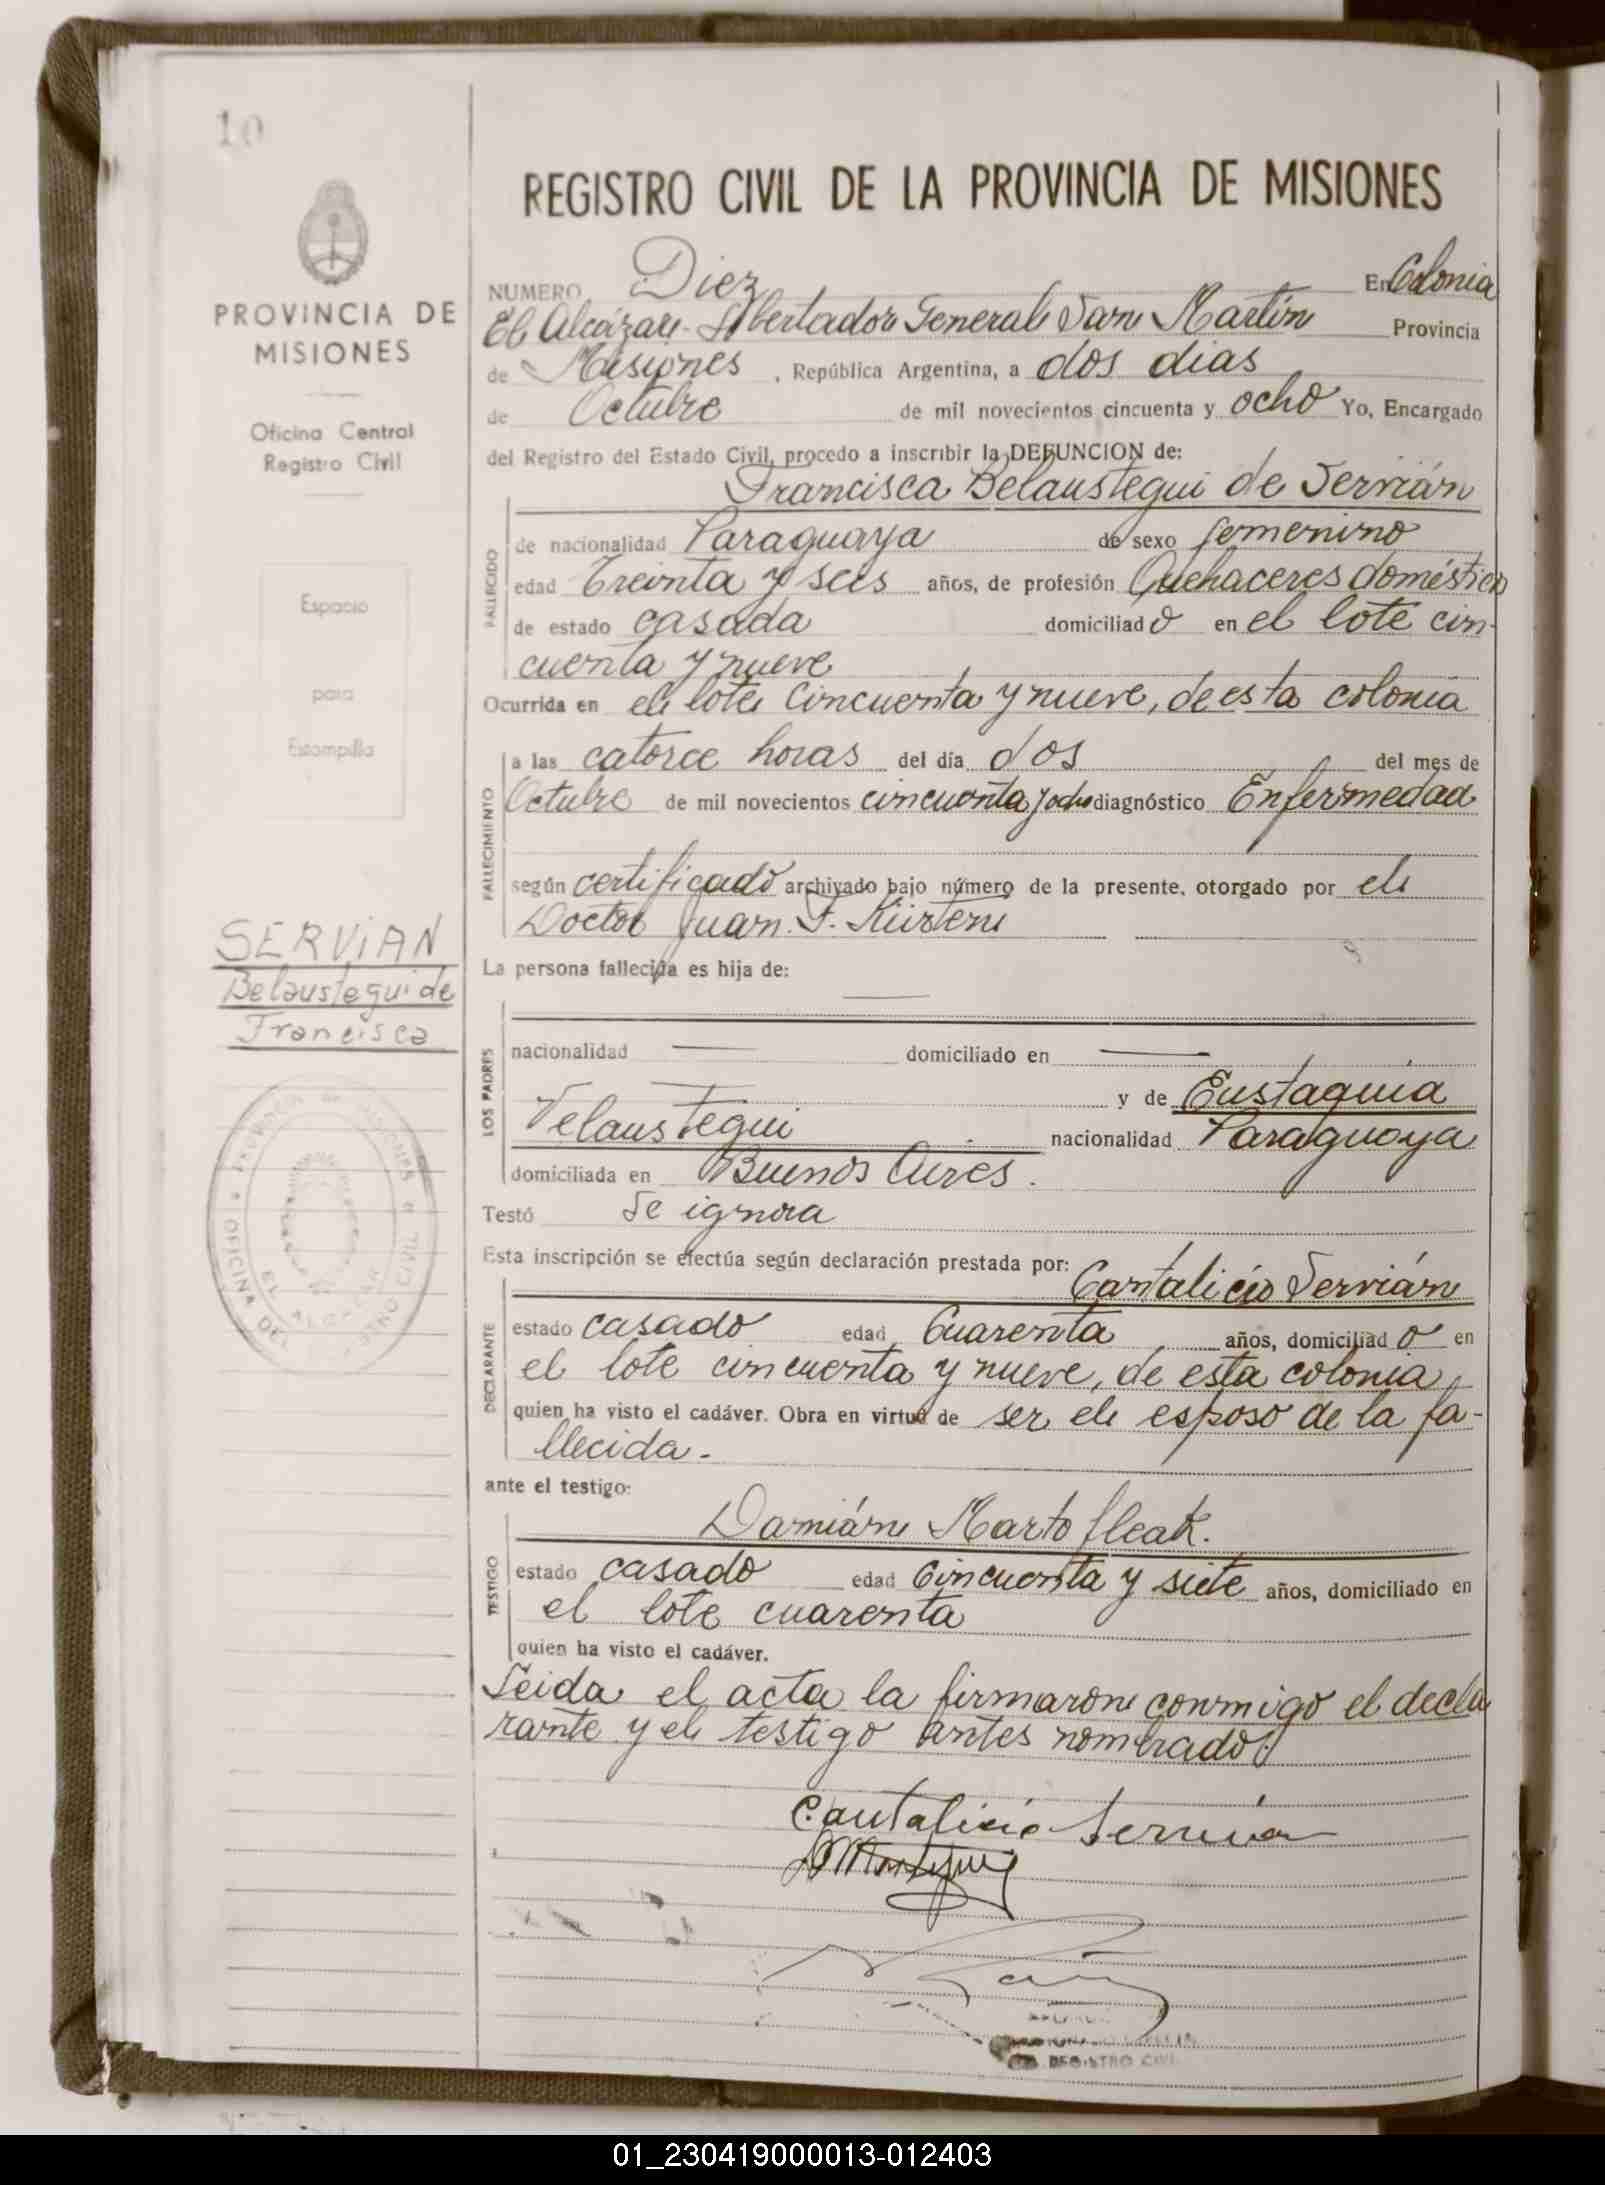 10
PROVINCIA DE
MISIONES
Oficina Central
Registro Civil
Espacio
para
Estampilla
SERVIAN
Belaustegui de
Francisca
PROVINCIA DE MISIONES
OFICINA DEL REGISTRO CIVIL
EL ALCAZAR
REGISTRO CIVIL DE LA PROVINCIA DE MISIONES
NUMERO Diez En Colonia
El Alcázar - Libertador General San Martín Provincia
de Misiones , República Argentina, a dos dias
de Octubre de mil novecientos cincuenta y ocho Yo, Encargado
del Registro del Estado Civil, procedo a inscribir la DEFUNCION de:
Francisca Belaustegui de Servián
FALLECIDO
de nacionalidad Paraguaya de sexo femenino
edad Treinta y seis años, de profesión Quehaceres domésticos
de estado casada domiciliado en el lote cin-
cuenta y nueve
Ocurrida en el lote cincuenta y nueve, de esta colonia
FALLECIMIENTO
a las catorce horas del día dos del mes de
Octubre de mil novecientos cincuenta y ocho diagnóstico Enfermedad
según certificado archivado bajo número de la presente, otorgado por el
Doctor Juan F. Kürten
La persona fallecida es hija de:
LOS PADRES
nacionalidad — domiciliado en —
y de Eustaquia
Velaustegui nacionalidad Paraguaya
domiciliada en Buenos Aires.
Testó Se ignora
Esta inscripción se efectúa según declaración prestada por:
Cantalicio Servián
DECLARANTE
estado casado edad Cuarenta años, domiciliado en
el lote cincuenta y nueve, de esta colonia,
quien ha visto el cadáver. Obra en virtud de ser el esposo de la fa-
llecida.-
ante el testigo:
Damián Marto fleak.
TESTIGO
estado casado edad Cincuenta y siete años, domiciliado en
el lote cuarenta
quien ha visto el cadáver.
Leida el acta la firmaron conmigo el decla
rante y el testigo antes nombrado.
Cantalicio Servian
REGISTRO CIVIL
01_230419000013-012403